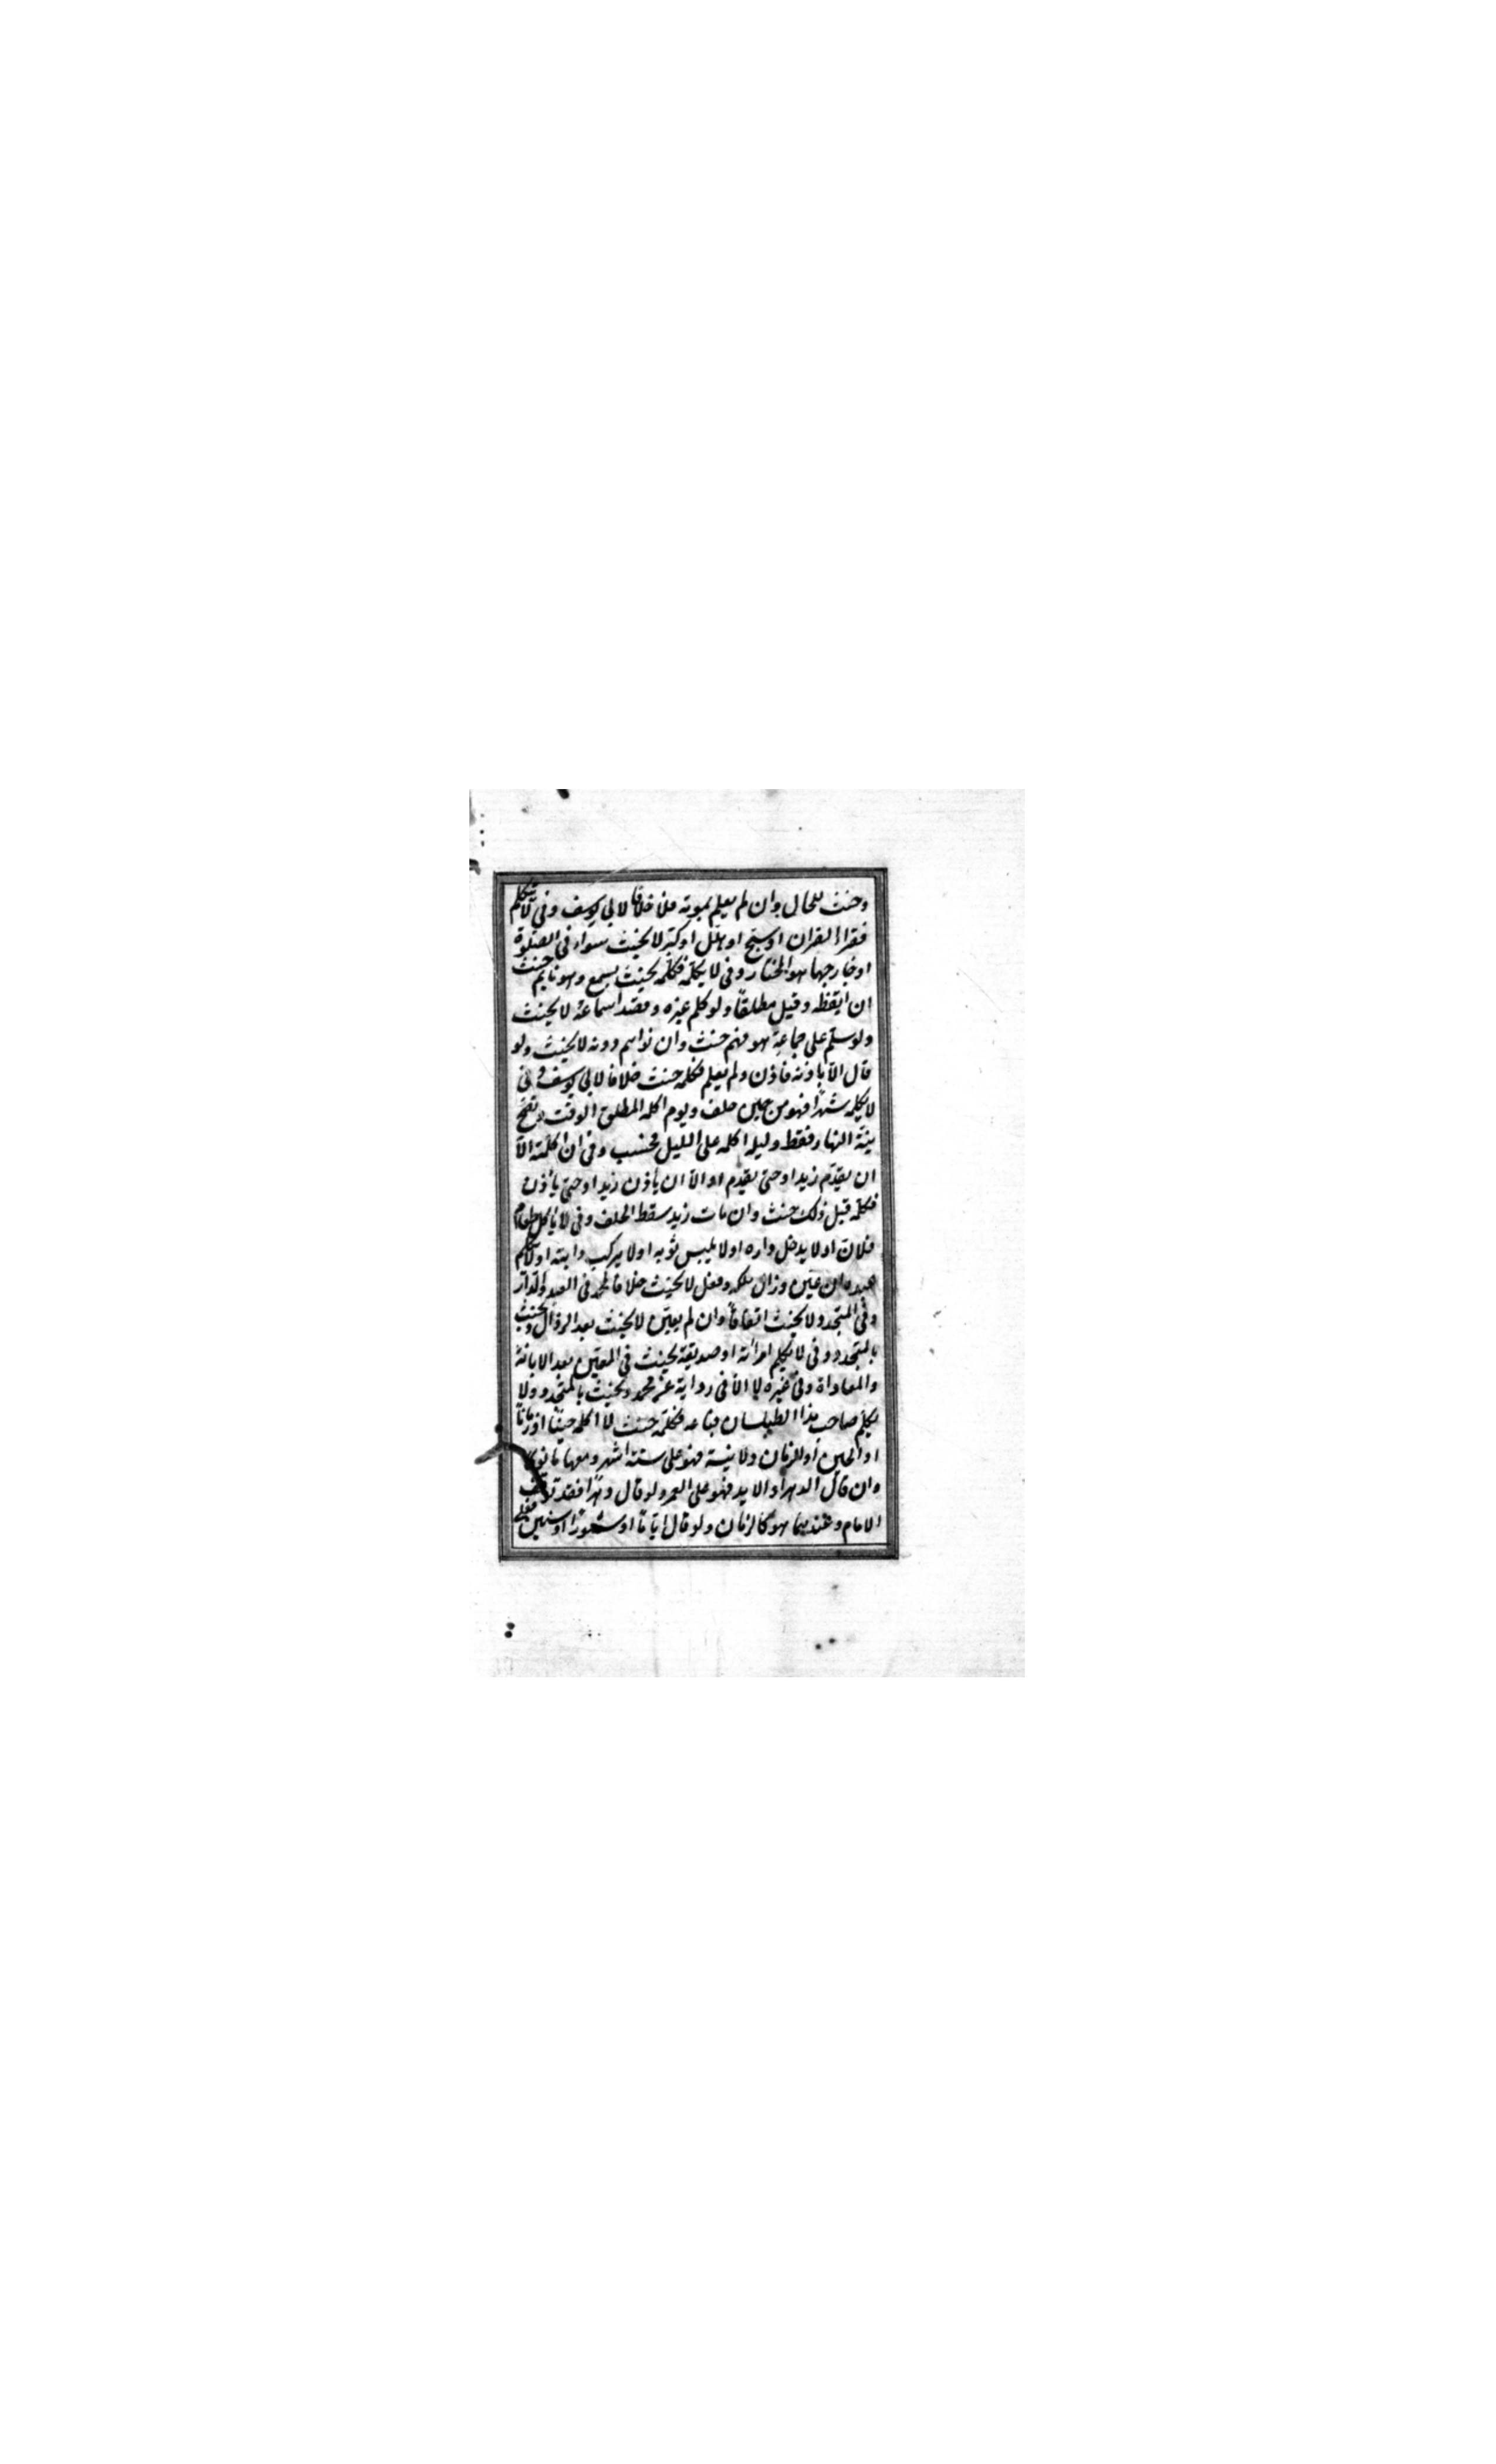 وحنث للحال وان لم يعلم بموته فلا خلافا لابي يوسف وفي لا يتكلم
فقرا القران او سبح او هلل او كبر لا يحنث سواء في الصلوة
او خارجها هو المختار وفي لا يكلمه فكلمه بحيث يسمع وهو نايم حنث
ان ايقظه وقيل مطلقا ولو كلم غيره وقصد اسماعه لا يحنث
ولو سلم على جماعة هو فيهم حنث وان نواهم دونه لا يحنث ولو
قال الا باذنه فاذن ولم يعلم فكلمه حنث خلافا لابي يوسف وفي
لا يكلمه شهرا فهو من حين حلف ويوم اكلمه لمطلق الوقت وتصح
نية النهار فقط وليلة اكلمه على الليل فحسب وفي ان اكلمته الا
ان يقدم زيد او حتى يقدم او الا ان ياذن زيد او حتى يأذن
فكلمه قبل ذلك حنث وان مات زيد سقط الحلف وفي لا ياكل طعام
فلان او لا يدخل داره او لا يلبس ثوبه او لا يركب دابته او لا يكلم
عبده ان عين وزال ملكه وفعل لا يحنث خلافا لمحمد في العبد والدار
وفي المتجدد لا يحنث اتفاقا وان لم يعين لا يحنث بعد الزوال ويحنث
بالمتجدد وفي لا يكلم امرأته او صديقه يحنث في المعين بعد الابانة
والمعاداة وفي غيره لا الا في رواية عن محمد ويحنث بالمتجدد ولا
يكلم صاحب هذا الطيلسان فباعه فكلمه حنث لا اكلمه حينا او زمانا
او الحين او الزمان ولا نية فهو على ستة اشهر ومعها ما نوى
وان قال الدهر او الابد فهو على العمر ولو قال دهرا فقد توقف
الامام وعندهما هو كالزمان ولو قال اياما او شهورا او سنين فعلى